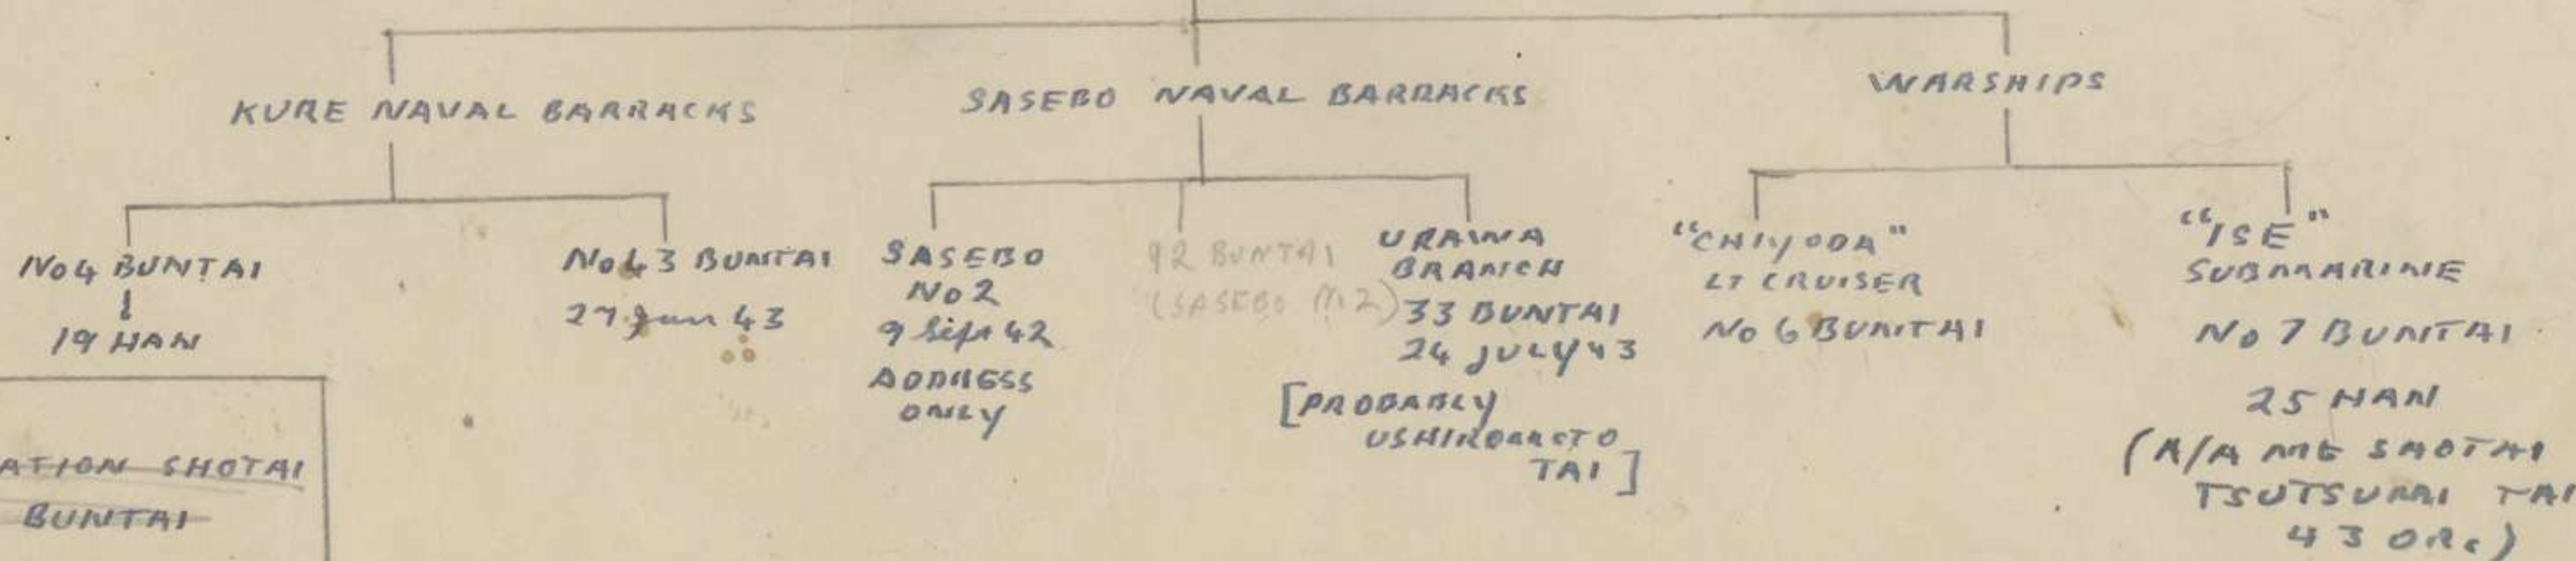 KURE NAVAL BARRACKS
SASEBO NAVAL BARRACKS
WARSHIPS
No 4 BUNTAI
19 HAN
No 43 BUNTAI
27 Jan 43
SASEBO
No 2
9 Sept 42
ADDRESS
ONLY
92 BUNTAI
(SASEBO No 2)
URAWA
BRANCH
33 BUNTAI
24 JULY 43
[PROBABLY
TAI]
"CHIYODA"
LT CRUISER
No 6 BUNTAI
"ISE"
SUBMARINE
No 7 BUNTAI
25 HAN
(A/A SHOTAI
TSUTSUMI TAI
43 ORs)
ATION SHOTAI
BUNTAI